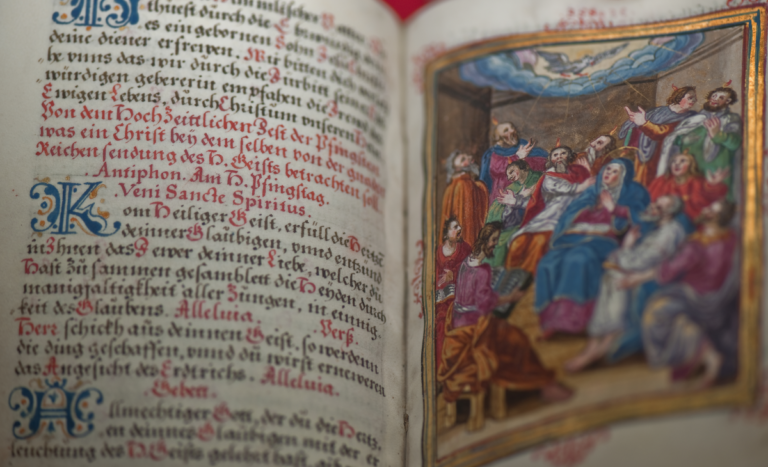 thuest durch die
es eingebornen Sohn
deine diener erfrewen. Wir bitten dich
he vnns das wir durch die Fürbitt seiner
würdigen gebererin empfahen die
Ewigen Lebens, durch Christum vnseren
Von dem Hoch Zeittlichen Fest der Pfingsten
was ein Christ bey dem selben von der
Reichen sendung des H. Geists betrachten soll.
Antiphon. Am H. Pfingstag.
Veni Sancte Spiritus.
Kom Heiliger Geist, erfüll die Hertzen
deinner Glaübigen, vnnd entzünd
in Ihnen das Fewer deinner Liebe, welcher dü
Hast zü sammen gesamblett die Heyden dürch
manigfaltigkheit aller Zungen, in einnig-
keit des Glaübens. Alleluia.
Herr schickh aüs deinnen Geist. so werden Verß.
die ding geschaffen, vnnd dü wirst erneweren
das Angesicht des Erdtrichs. Alleluia.
Gebett.
Allmechtiger Gott, der dü die Hertz-
en deinnes Glaübigen mit der er
leüchtung des H. Geists gelehrt hast,